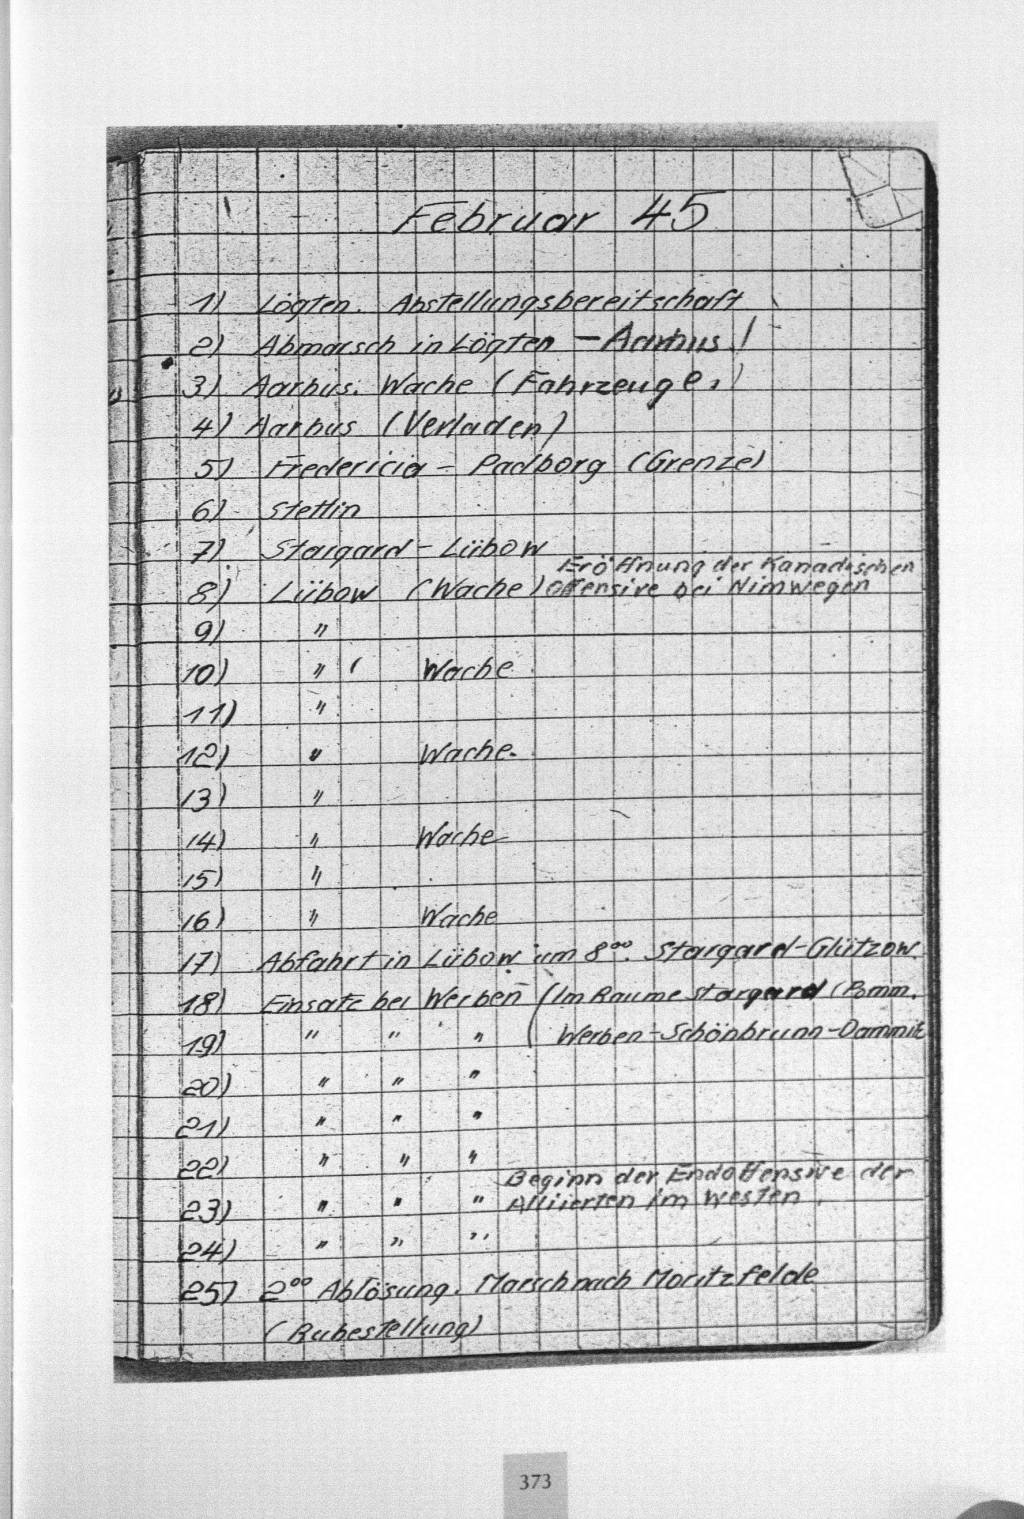 Februar 45
1) Lögten. Abstellungsbereitschaft
2) Abmarsch in Lögten – Aarhus!
3) Aarhus. Wache (Fahrzeuge.)
4) Aarhus (Verladen)
5) Fredericia – Padborg (Grenze)
6) Stettin
7) Stargard – Lübow
Eröffnung der Kanadischen
8) Lübow (Wache) offensive bei Nimwegen
9) "
10) " ( Wache
11) "
12) " Wache.
13) "
14) " Wache
15) "
16) " Wache
17) Abfahrt in Lübow um 8⁰⁰. Stargard–Glützow.
18) Einsatz bei Werben (Im Raume Stargard (Pomm.
19) " " " Werben–Schönbrunn–Dammit
20) " " "
21) " " "
22) " " "
Beginn der Endoffensive der
23) " " " Alliierten im Westen.
24) " " "
25) 2⁰⁰ Ablösung. Marsch nach Moritzfelde
(Ruhestellung)
373